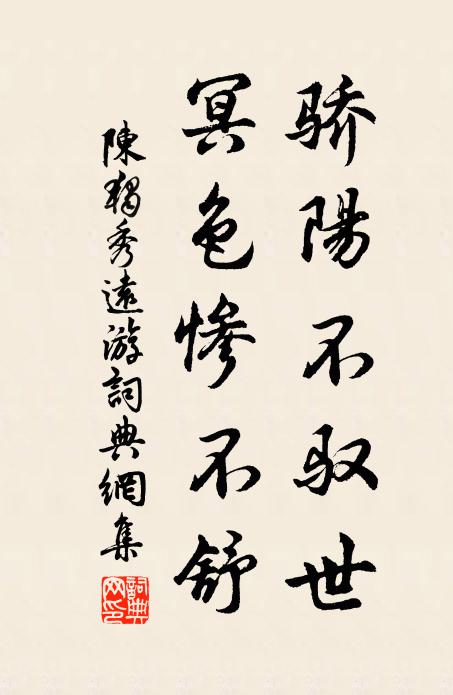 骄陽不驭世
冥色惨不舒
陳獨秀遠游詞典網集
詞典网印